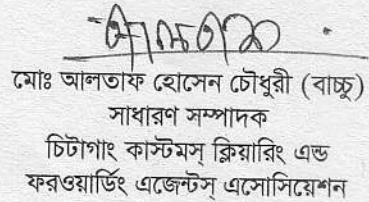 মোঃ আলতাফ হোসেন চৌধুরী (বাচ্চু)
সাধারণ সম্পাদক
চিটাগাং কাস্টমস্ ক্লিয়ারিং এন্ড
ফরওয়ার্ডিং এজেন্টস্ এসোসিয়েশন